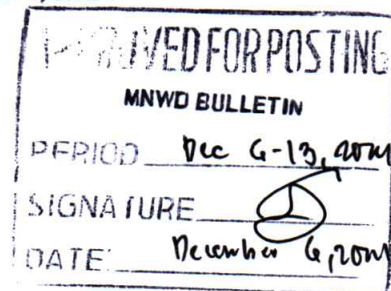 APPROVED FOR POSTING
MNWD BULLETIN
PERIOD Dec 6-13,
SIGNATURE
DATE: December 6,